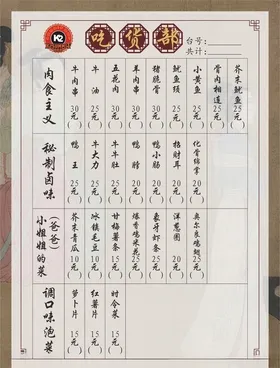 吃货部
台号:
共计:
肉食主义
牛肉串 30元( )
牛油 25元( )
五花肉 30元( )
羊肉串 30元( )
猪脆骨 30元( )
鱿鱼须 25元( )
小黄鱼 25元( )
骨肉相连 25元( )
芥末鱿鱼 25元( )
秘制卤味
鸭王 25元( )
牛大力 25元( )
牛牛肚 25元( )
鸭脖 25元( )
鸭小肠 25元( )
招财耳 20元( )
化骨绵掌 20元( )
小姐姐的菜(爸爸)
芥末青瓜 10元( )
冰镇毛豆 10元( )
甘梅薯条 15元( )
爆香鸡米花 25元( )
象牙虾条 20元( )
洋葱圈 20元( )
奥尔良鸡翅 25元( )
调口味泡菜
萝卜片 15元( )
红薯片 15元( )
时令菜 15元( )